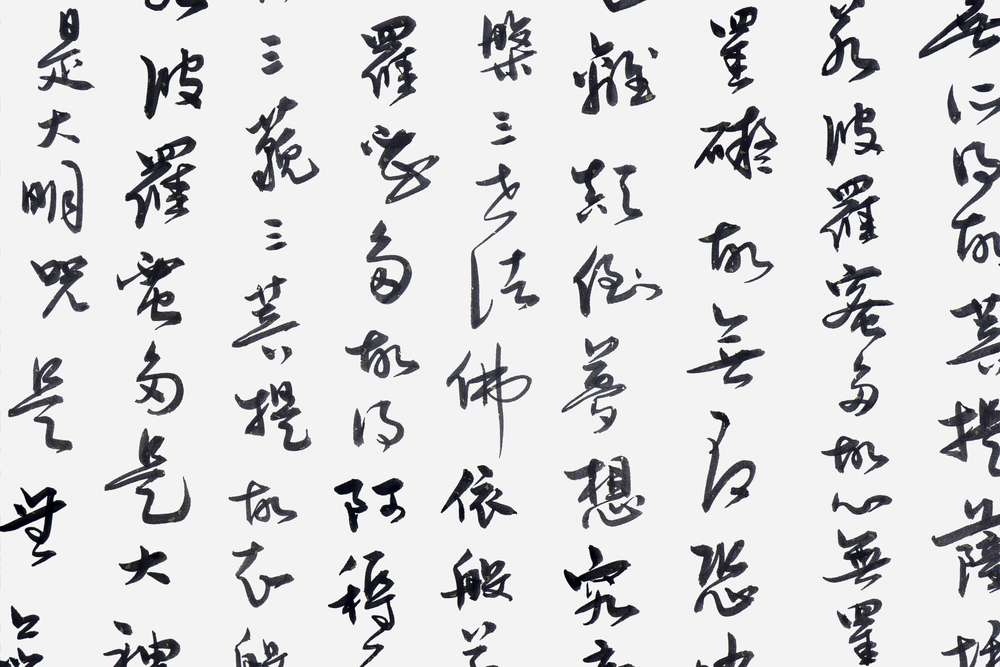 無所得故菩提薩埵
若波羅蜜多故心無罣
罣礙故無有恐怖
離顛倒夢想究竟
槃三世諸佛依般若
羅蜜多故得阿耨多
三藐三菩提故知般
波羅蜜多是大神
是大明咒是無上